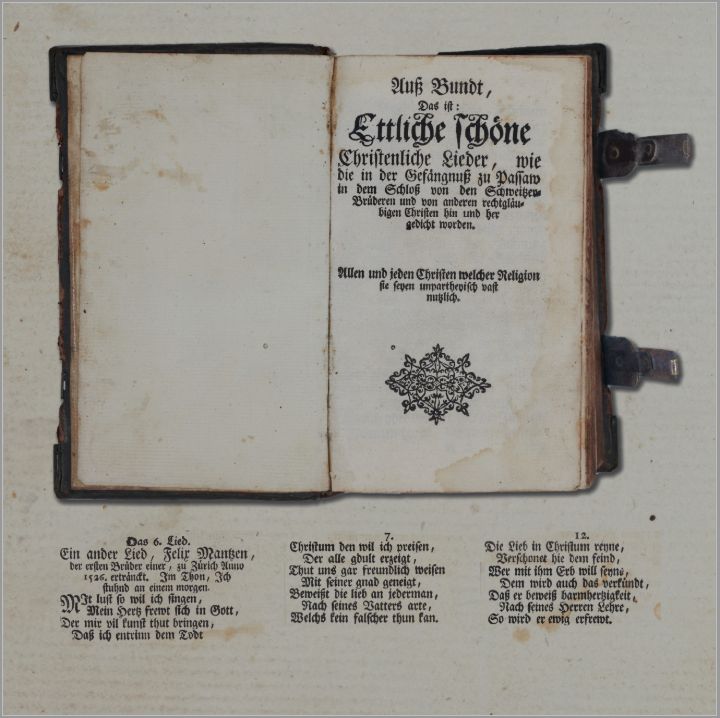 Auß Bundt,
Das ist:
Ettliche schöne
Christenliche Lieder, wie
die in der Gefängnuß zu Passaw
in dem Schloß von den Schweitzer-
Brüderen und von anderen rechtgläu-
bigen Christen hin und her
gedicht worden.
Allen und jeden Christen welcher Religion
sie seyen unpartheyisch vast
nutzlich.
Das 6. Lied.
Ein ander Lied, Felix Mantzen,
der ersten Brüder einer, zu Zürich Anno
1526. ertränckt. Im Thon, Ich
stuhnd an einem morgen.
Mit lust so wil ich singen,
Mein Hertz frewt sich in Gott,
Der mir vil kunst thut bringen,
Daß ich entrinn dem Todt
7.
Christum den wil ich preisen,
Der alle gdult erzeigt,
Thut uns gar freundlich weisen
Mit seiner gnad geneigt,
Beweißt die lieb an jederman,
Nach seines Vatters arte,
Welchs kein falscher thun kan.
12.
Die Lieb in Christum reyne,
Verschonet hie dem feind,
Wer mit ihm Erb will seyns,
Dem wird auch das verkündt,
Daß er beweiß barmhertzigkeit,
Nach seines Herren Lehre,
So wird er ewig erfrewt.